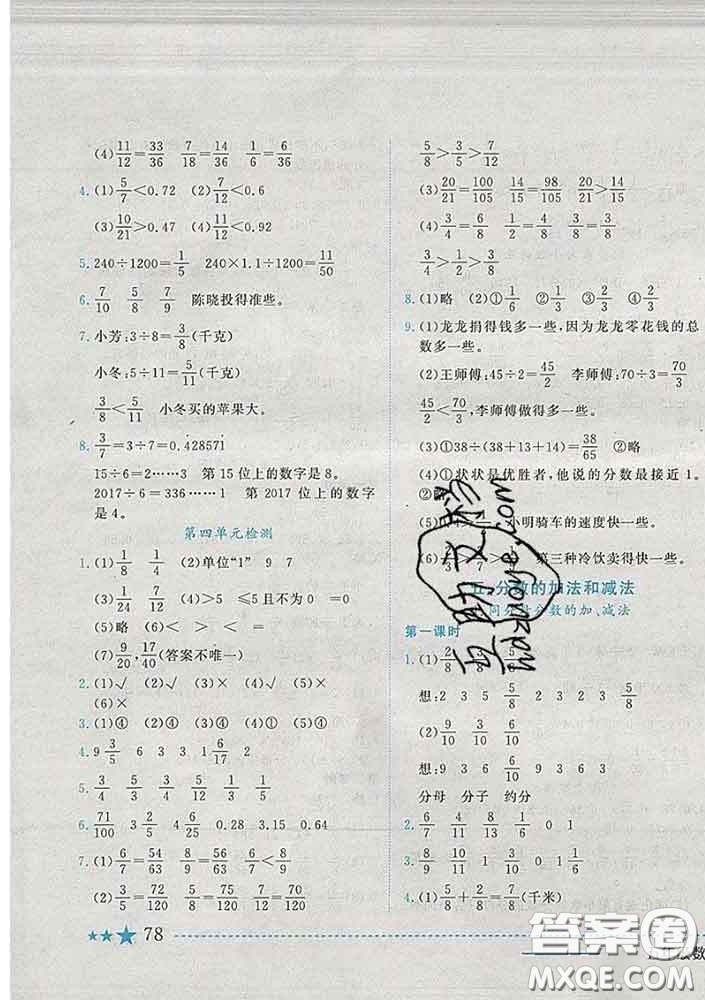 (4) 11/12=33/36 7/18=14/36 1/6=6/36
4. (1) 5/7<0.72 (2) 7/12<0.6
(3) 10/21>0.47 (4) 11/12<0.92
5. 240÷1200=1/5 240×1.1÷1200=11/50
6. 7/10 5/7 7/9 陈晓投得准些。
7. 小芳:3÷8=3/8(千克)
小冬:5÷11=5/11(千克)
3/8<5/11 小冬买的苹果大。
8. 3/7=3÷7=0.428571
15÷6=2……3 第15位上的数字是8。
2017÷6=336……1 第2017位上的数字
是4。
第四单元检测
1. (1) 1/8 4/8 (2)单位"1" 9 7
(3) 1/24 7/12 (4)>5 ≤5 0
(5)略 (6)< > < =
(7) 9/20,17/40(答案不唯一)
2. (1)√ (2)√ (3)× (4)√ (5)×
(6)×
3. (1)④ (2)④ (3)① (4)① (5)④
4. 9 3/5 6 3 3 1 6/17 2
5. 3/4 3/4 5/12 1/5 3/4
6. 71/100 3 2/5 4 9/50 0.28 3.15 0.64
7. (1) 6/7=54/63 8/9=56/63 6/7<8/9
(2) 3/5=72/120 5/8=75/120 7/12=70/120
78
5/8>3/5>7/12
(3) 20/21=100/105 14/15=98/105 20/21>14/15
(4) 3/4=6/8 1/2=4/8 3/8=3/8
3/4>1/2>3/8
8. (1)略 (2)①1/6 ②1/2 ③3/4 ④2/3
9. (1)龙龙捐得钱多一些,因为龙龙零花钱的总
数多一些。
(2)王师傅:45÷2=45/2 李师傅:70÷3=70/3
45/2<70/3,李师傅做得多一些。
(3)①38÷(38+13+14)=38/65 ②略
(4)①状状是优胜者,他说的分数最接近1。
②略
(5) 小明骑车的速度快一些。
(6) 第三种冷饮卖得快一些。
五、分数的加法和减法
同分母分数的加、减法
第一课时
1. (1) 2/8
想:2 3 5 5/8 2 3 2 3 5/8
(2) 9/10 3/10 6/10
想:9 3 6 6/10 9 3 6 6/10
分母 分子 约分
2. 6/7 4/11 8/13 1/6 0 1
3. 8/9 4/10 4/11 2/7 0 1/6
4. (1) 5/8+2/8=7/8(千米)
互助文栏
hdzuoye.com
答案圈
MXQE.COM